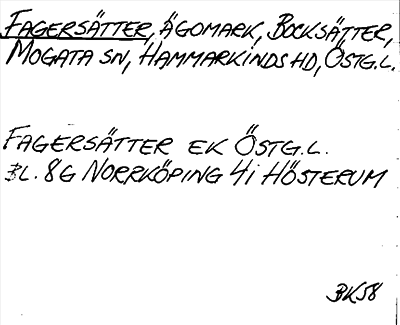 FAGERSÄTTER, ÄGOMARK, BOCKSÄTTER,
MOGATA SN, HAMMARKINDS HD, ÖSTG.L.
FAGERSÄTTER EK ÖSTG.L.
BL. 8G NORRKÖPING 4i HÖSTERUM
BK58